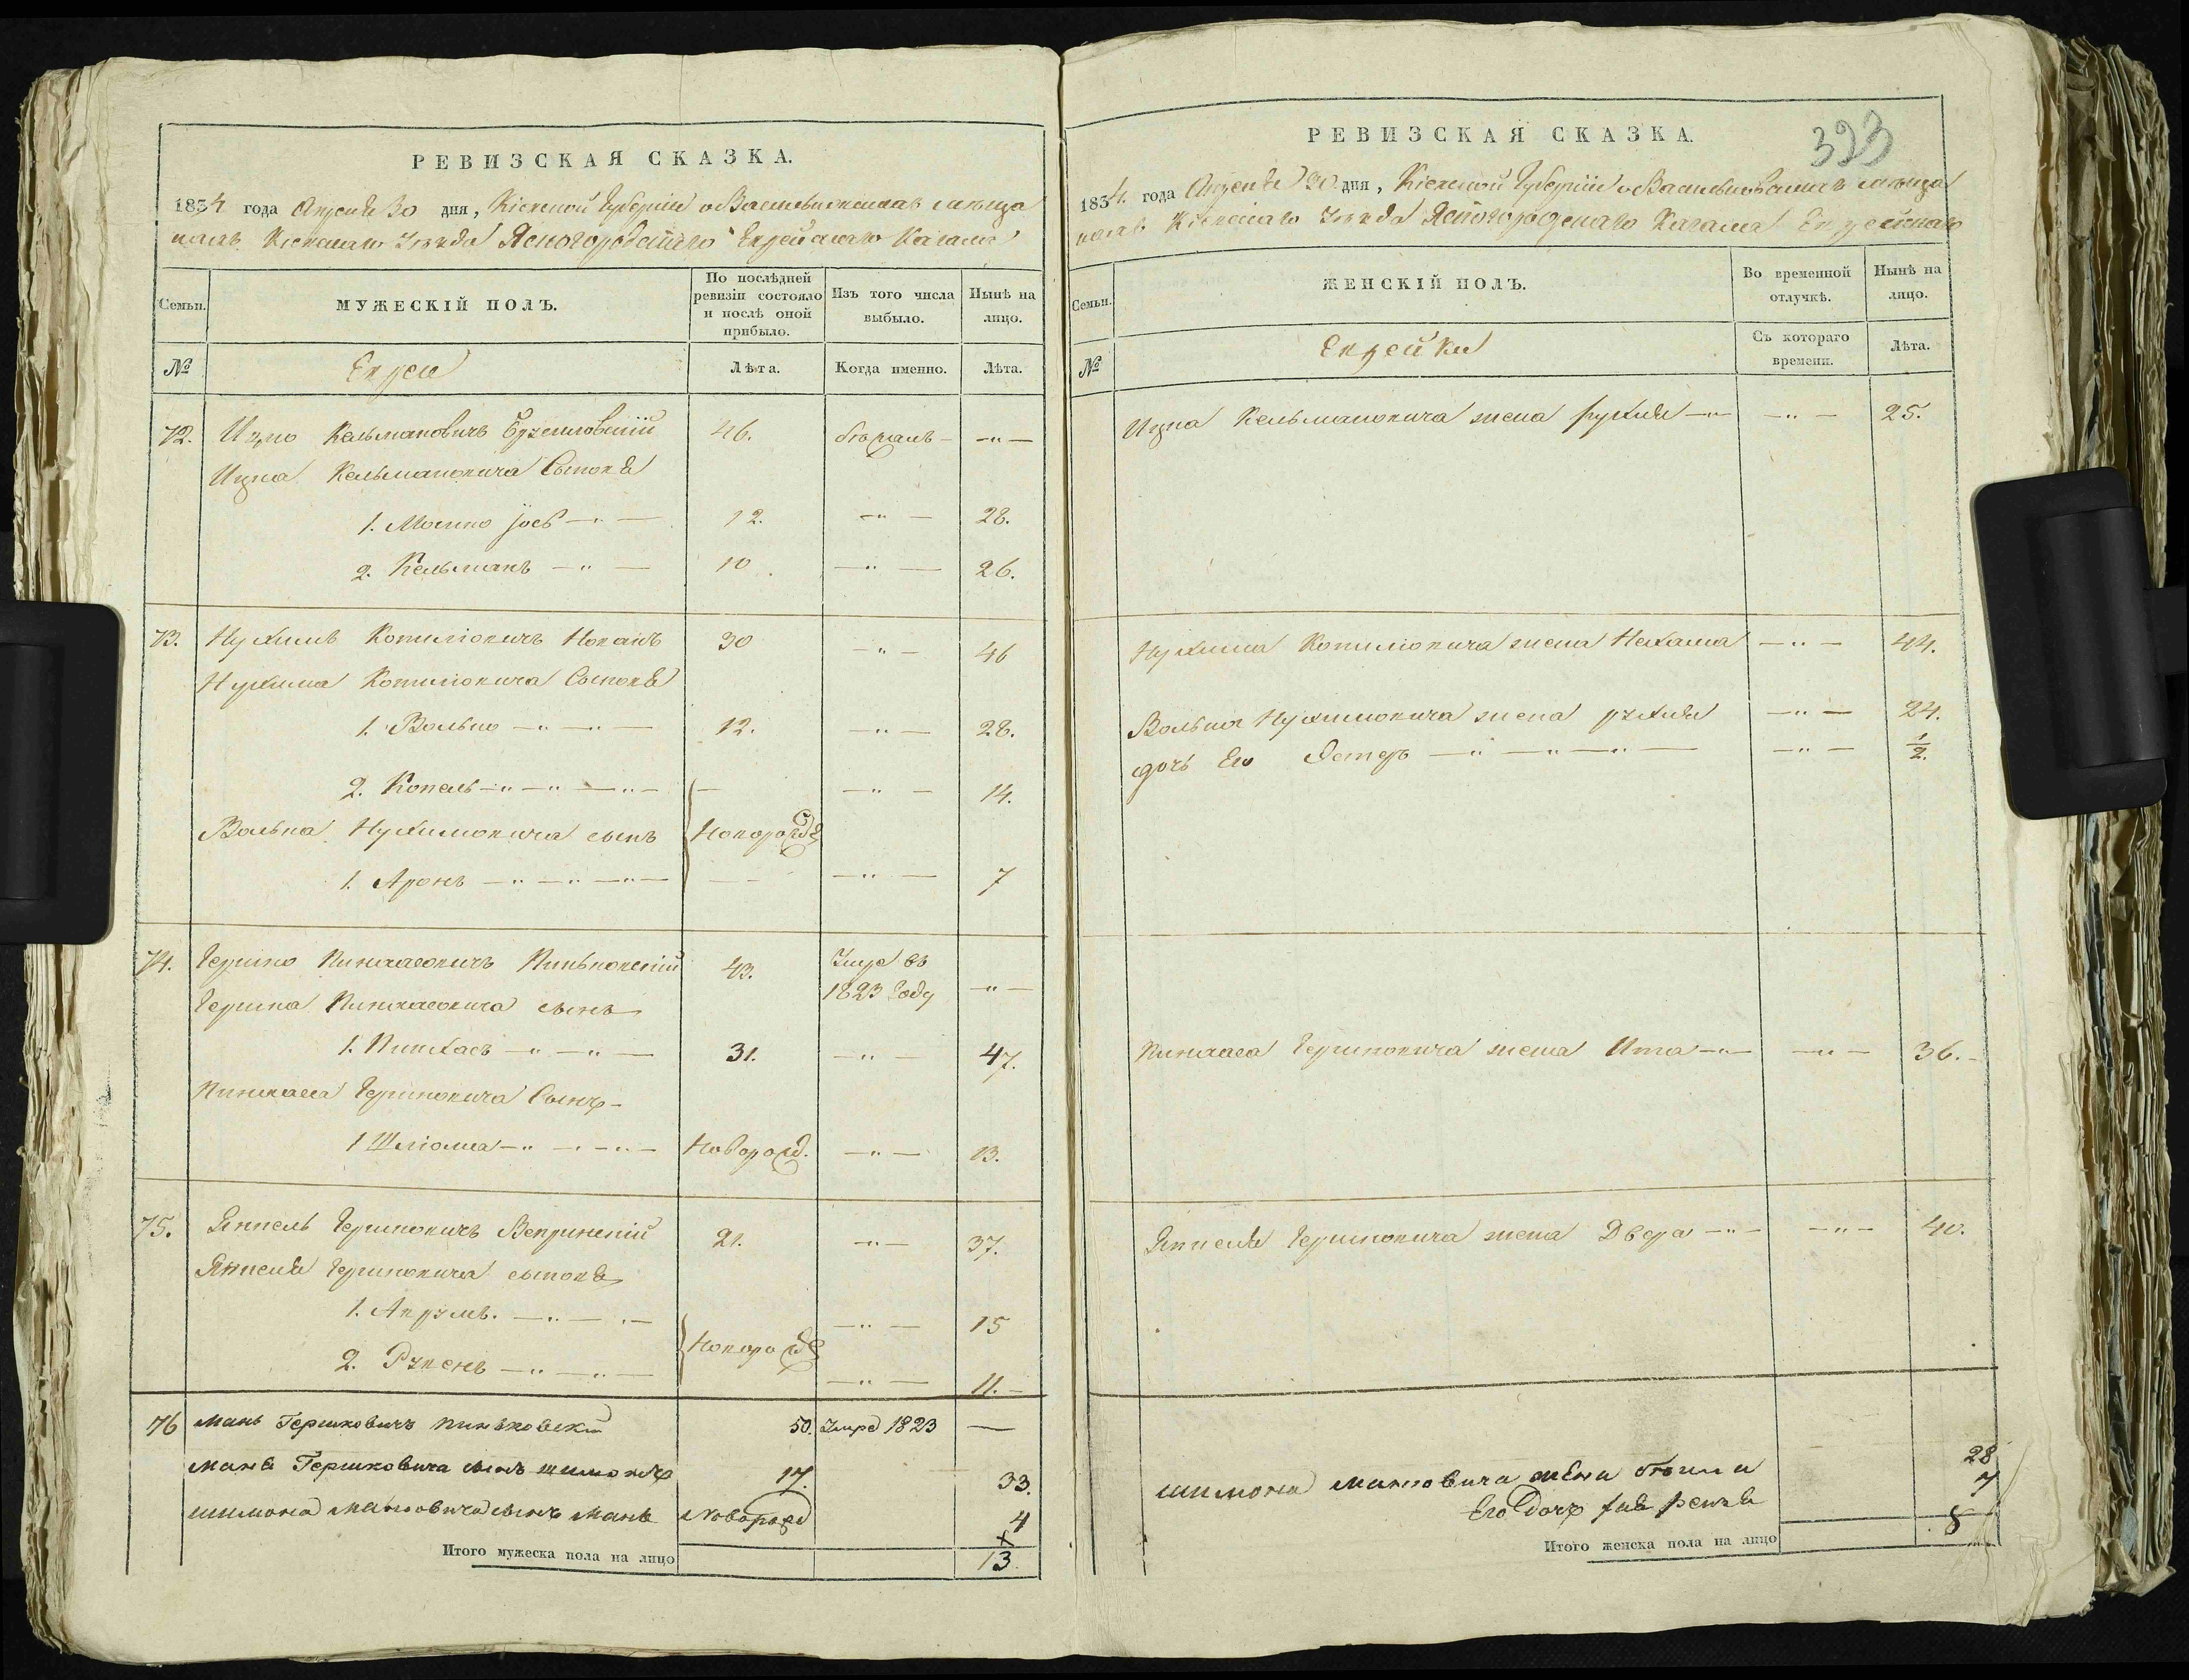 РЕВИЗСКАЯ СКАЗКА.
1834 года Апреля 30 дня, Кіевской Губерніи о Васильковскихъ мѣща
нахъ Кіевскаго Уѣзда Ясногородскаго Еврейскаго Кагала
Семьи.
МУЖЕСКІЙ ПОЛЪ.
По послѣдней ревизіи состояло и послѣ оной прибыло.
Изъ того числа выбыло.
Нынѣ на лицо.
№
Евреи
Лѣта.
Когда именно.
Лѣта.
72. Ицко Кельмановичъ 46. —"—
Ицка Кельмановича Сыновья
1. Мошко Іось —"— 12. —"— 28.
2. Кельманъ —"— 10. —"— 26.
73. Нухимъ Копиліовичъ 30 —"— 46
Нухима Копиліовича Сыновья
1. Волько —"—"— 12. —"— 28.
2. Копель —"—"—"— — —"— 14.
Волька Нухимовича сынъ Новорожд
1. Аронъ —"—"—"— —"— 7
74. Гершко Пинхасовичъ Пиньковскій 43. Умре въ 1823 году —"—
Гершка Пинхасовича сынъ
1. Пинхасъ —"—"— 31. —"— 47.
Пинхаса Гершковича Сынъ
1 Шліома —"—"— Новорожд. —"— 13.
75. Янкель Гершковичъ Вепринскій 21. —"— 37.
Янкеля Гершковича сыновья
1. Аврумъ. —"—"— —"— 15
2. Рувенъ —"—"— Новорожд —"— 11.
76 Мань Гершковичъ Пиньковскій 50. Умре 1823 —
Маня Гершковича сынъ шимонъ 17. 33.
шимона Маньовича сынъ Мань Новорожд 4
Итого мужеска пола на лицо 13
РЕВИЗСКАЯ СКАЗКА.
323
1834. года Апреля 30. дня, Кіевской Губерніи о Васильковскихъ мѣща
нахъ Кіевскаго Уѣзда Ясногородскаго Кагала Еврейскаго
Семьи.
ЖЕНСКІЙ ПОЛЪ.
Во временной отлучкѣ.
Нынѣ на лицо.
№
Еврейки
Съ котораго времени.
Лѣта.
Ицка Кельмановича жена Рухля —"— —"— 25.
Нухима Копиліовича жена Нехама —"— 44.
Волька Нухимовича жена Рухля —"— 24.
дочь Его Эстеръ —"—"—"— —"— 1/2.
Пинхаса Гершковича жена Ита —"— —"— 36.
Янкеля Гершковича жена Двера —"— —"— 40.
шимона Маньовича жена 28
Его дочь 7
Итого женска пола на лицо 8